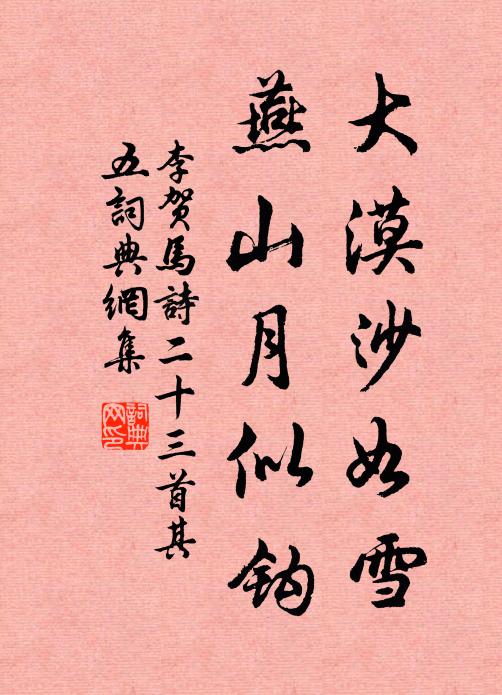 大漠沙如雪
燕山月似鈎
李賀馬詩二十三首其
五詞典網集
詞典
网印